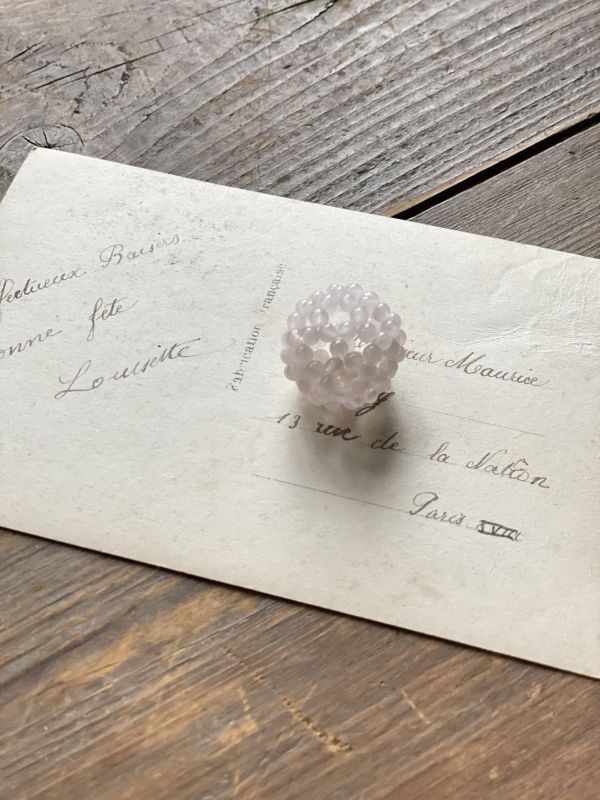 ffectueux Baisers
onne fête
Lousette
Fabrication Française
ieur Maurice
13 rue de la Nation
Paris XVIII